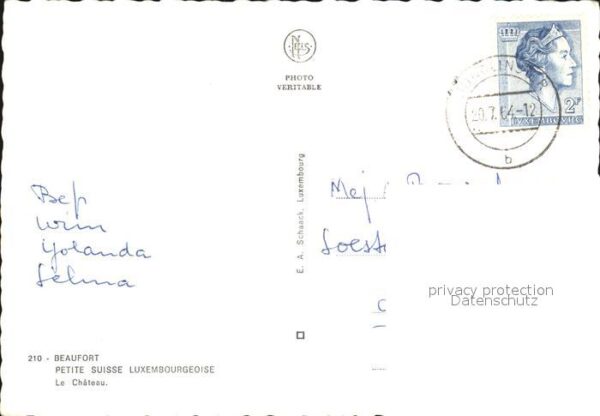 PHOTO
VERITABLE
2F
LUXEMBOURG
20.7.64-12
b
E. A. Schaack, Luxembourg
Bep
Wim
Yolanda
Selma
Mej
Soest
privacy protection
Datenschutz
210 - BEAUFORT
PETITE SUISSE LUXEMBOURGEOISE
Le Château.